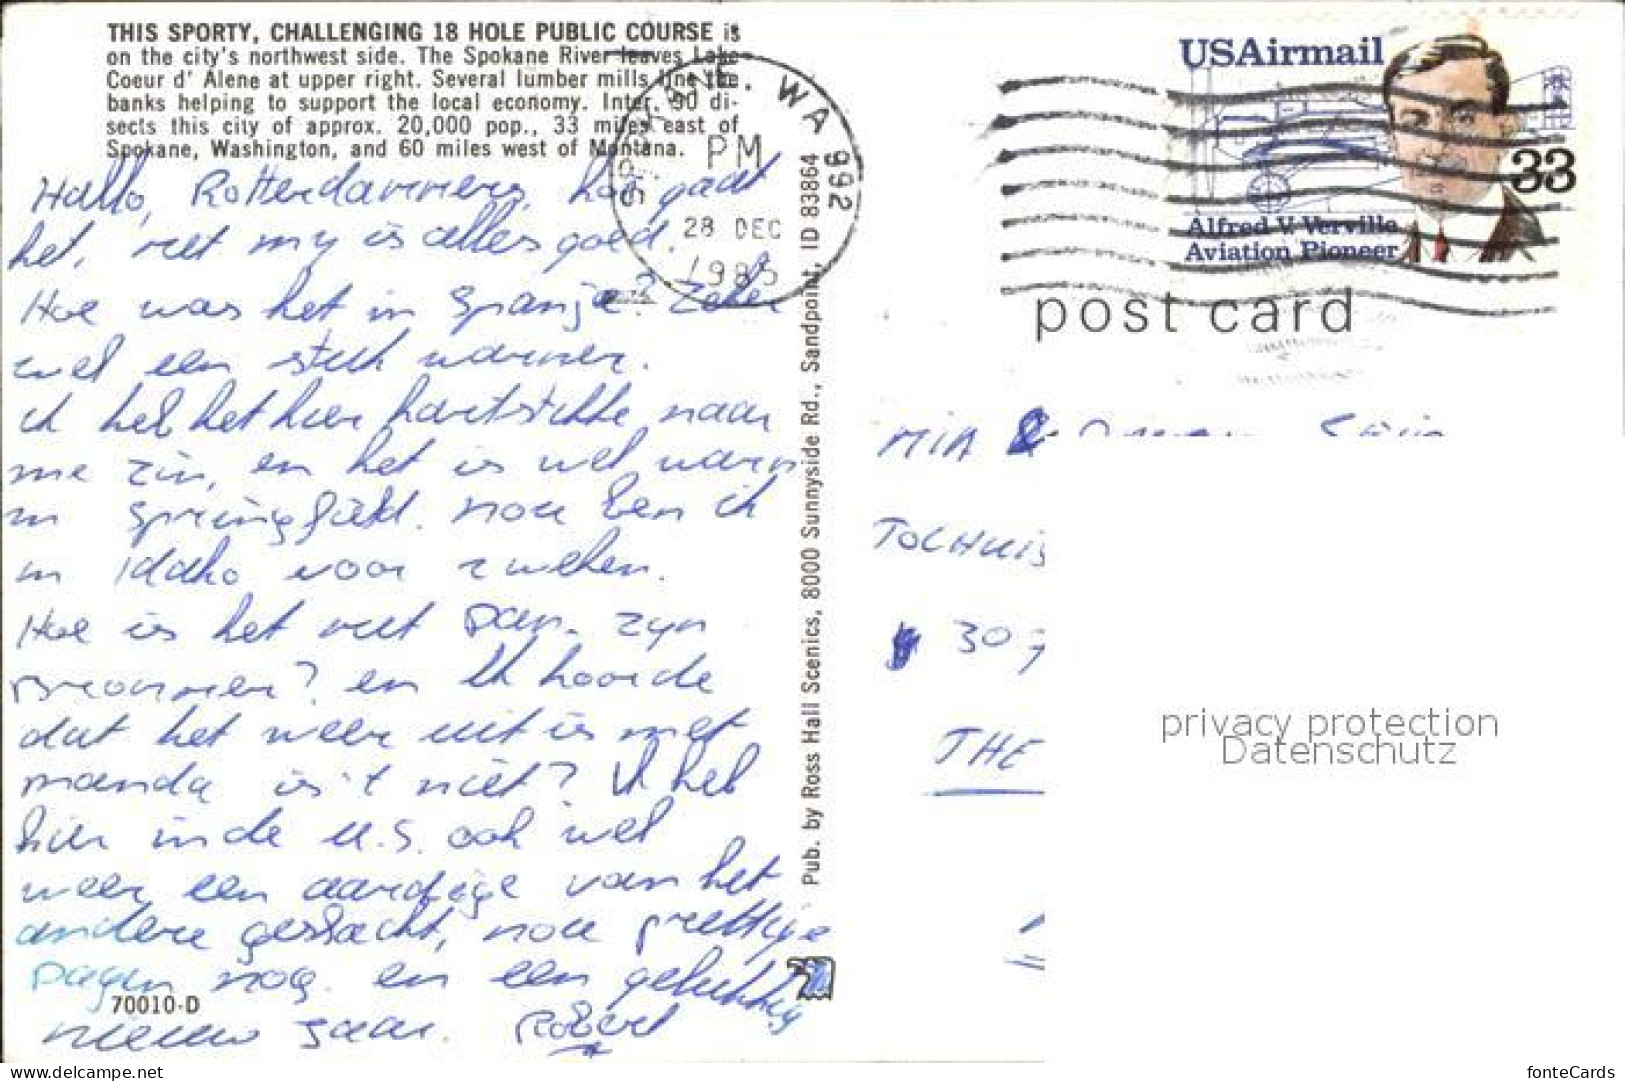 THIS SPORTY, CHALLENGING 18 HOLE PUBLIC COURSE is
on the city's northwest side. The Spokane River leaves Lake
Coeur d' Alene at upper right. Several lumber mills line the
banks helping to support the local economy. Inter. 90 di-
sects this city of approx. 20,000 pop., 33 miles east of
Spokane, Washington, and 60 miles west of Montana.
Hallo, Rotterdammers, hoe gaat
het, met my is alles goed.
Hoe was het in Spanje? Zeker
wel een stuk warmer.
ik heb het hier hartstikke naar
me zin, en het is wel warm
in Springfield. nou ben ik
in Idaho voor 2 weken.
Hoe is het met Dan. zyn
Brommer? en Ik hoorde
dat het weer uit is met
manda is 't niet? Ik heb
hier in de U.S. ook wel
weer een aardige van het
andere geslacht, nou prettige
Dagen nog. en een gelukkig
nieuw jaar. Robert
70010-D
Pub. by Ross Hall Scenics, 8000 Sunnyside Rd., Sandpoint, ID 83864
WA 992
PM
28 DEC
1985
USAirmail
33
Alfred V. Verville
Aviation Pioneer
post card
MIA &
TOLHUIS
307
THE
privacy protection
Datenschutz
delcampe.net
fonteCards